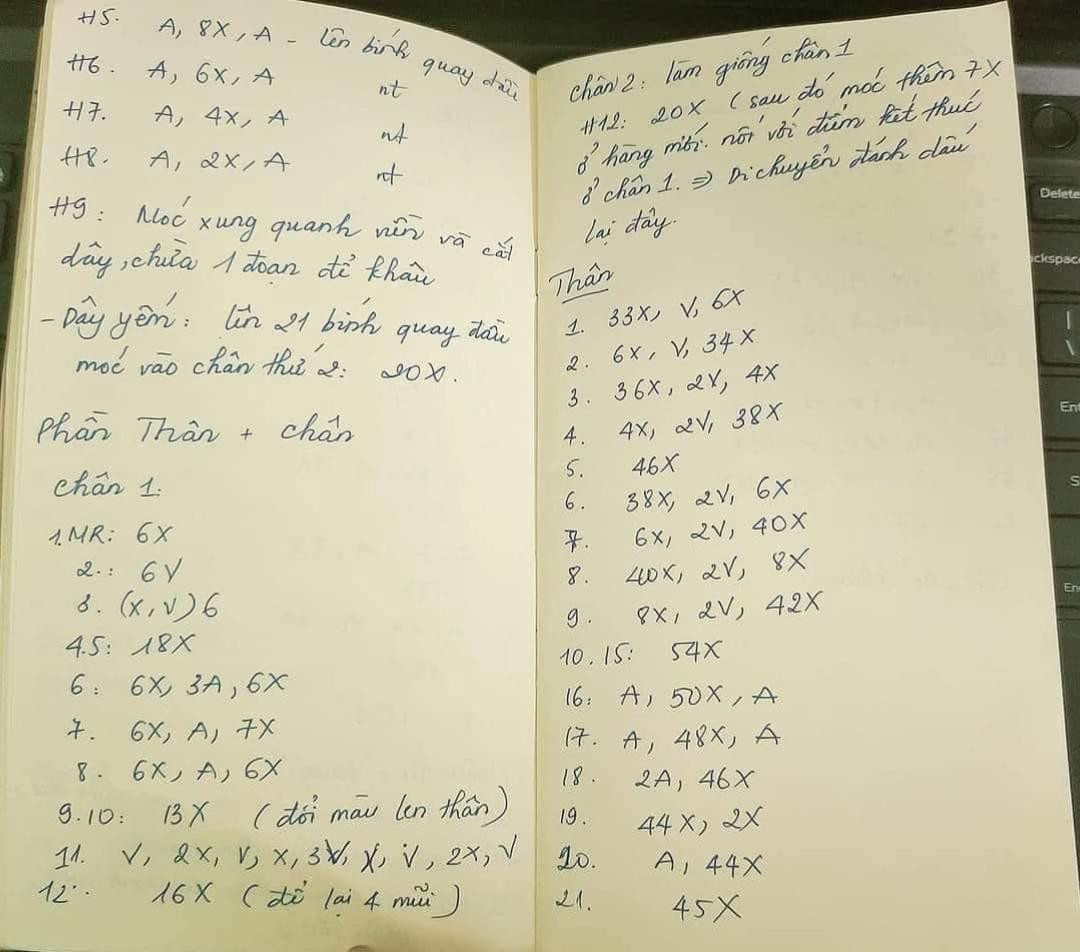 H5. A, 8X, A - lên bính quay đầu
H6. A, 6X, A nt
H7. A, 4X, A nt
H8. A, 2X, A nt
H9: Móc xung quanh viền và cắt
dây, chừa 1 đoạn để khâu
- Dây yếm: lên 21 bính quay đầu
móc vào chân thứ 2: 20X.
Phần Thân + chân
Chân 1:
1.MR: 6X
2.: 6V
3. (X, V)6
4.5: 18X
6: 6X, 3A, 6X
7. 6X, A, 7X
8. 6X, A, 6X
9.10: 13X (đổi màu len thân)
11. V, 2X, V, X, 3V, X, V, 2X, V
12. 16X (để lại 4 mũi)
Chân 2: làm giống chân 1
H12: 20X (sau đó móc thêm 7X
ở hàng mới. nối với điểm kết thúc
ở chân 1. ⇒ Di chuyển đánh dấu
lại đây.
Thân
1. 33X, V, 6X
2. 6X, V, 34X
3. 36X, 2V, 4X
4. 4X, 2V, 38X
5. 46X
6. 38X, 2V, 6X
7. 6X, 2V, 40X
8. 40X, 2V, 8X
9. 8X, 2V, 42X
10.15: 54X
16: A, 50X, A
17. A, 48X, A
18. 2A, 46X
19. 44X, 2X
20. A, 44X
21. 45X
Delete
ckspac
\
Ent
S
En